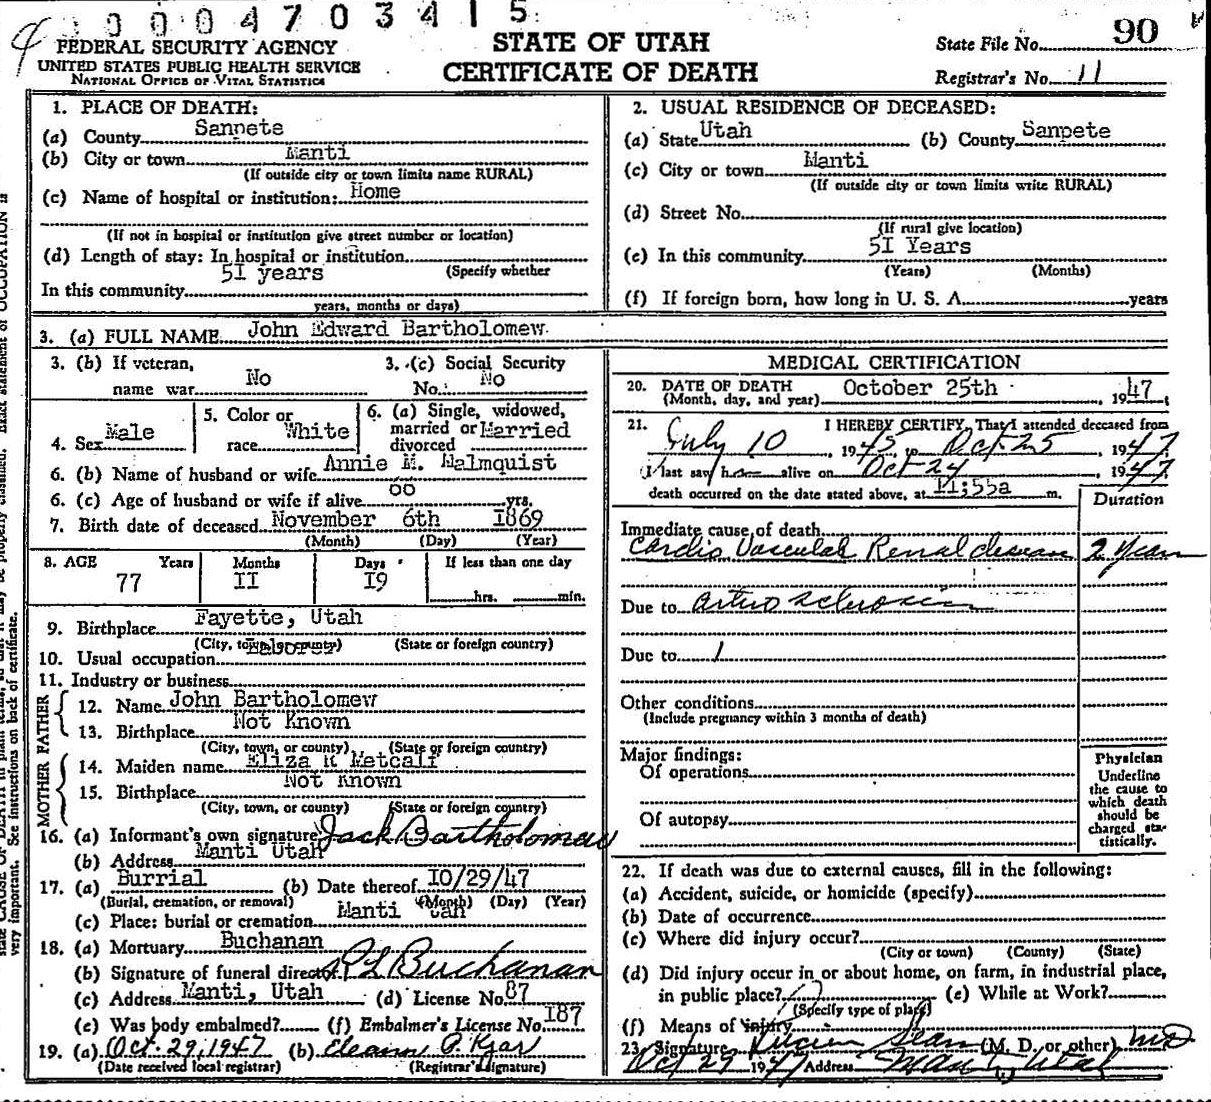 0 0 0 4 7 0 3 4 1 5
FEDERAL SECURITY AGENCY
UNITED STATES PUBLIC HEALTH SERVICE
NATIONAL OFFICE OF VITAL STATISTICS
STATE OF UTAH
CERTIFICATE OF DEATH
State File No. 90
Registrar's No. 11
1. PLACE OF DEATH:
(a) County Sanpete
(b) City or town Manti
(If outside city or town limits name RURAL)
(c) Name of hospital or institution: Home
(If not in hospital or institution give street number or location)
(d) Length of stay: In hospital or institution
(Specify whether
In this community 5I years
years, months or days)
2. USUAL RESIDENCE OF DECEASED:
(a) State Utah (b) County Sanpete
(c) City or town Manti
(If outside city or town limits write RURAL)
(d) Street No.
(If rural give location)
(e) In this community 5I Years
(Years) (Months)
(f) If foreign born, how long in U. S. A. years
3. (a) FULL NAME John Edward Bartholomew
3. (b) If veteran, name war No
3. (c) Social Security No. No
4. Sex Male
5. Color or race White
6. (a) Single, widowed, married or divorced Married
6. (b) Name of husband or wife Annie M. Malmquist
6. (c) Age of husband or wife if alive yrs.
7. Birth date of deceased November 6th I869
(Month) (Day) (Year)
8. AGE Years Months Days If less than one day
77 II I9 hrs. min.
9. Birthplace Fayette, Utah
(City, town or county) (State or foreign country)
10. Usual occupation
11. Industry or business
FATHER
12. Name John Bartholomew
13. Birthplace Not Known
(City, town, or county) (State or foreign country)
MOTHER
14. Maiden name Eliza R Metcalf
15. Birthplace Not Known
(City, town, or county) (State or foreign country)
16. (a) Informant's own signature Jack Bartholomew
(b) Address Manti Utah
17. (a) Burrial (b) Date thereof IO/29/47
(Burial, cremation, or removal) (Month) (Day) (Year)
(c) Place: burial or cremation Manti Utah
18. (a) Mortuary Buchanan
(b) Signature of funeral director Buchanan
(c) Address Manti, Utah (d) License No. 87
(e) Was body embalmed? (f) Embalmer's License No. I87
19. (a) Oct. 29, 1947 (b) Eleanor P. Kjar
(Date received local registrar) (Registrar's signature)
MEDICAL CERTIFICATION
20. DATE OF DEATH October 25th 1947
(Month, day, and year)
21. I HEREBY CERTIFY, That I attended deceased from
July 10, 1945, to Oct 25, 1947
I last saw h alive on Oct 24 1947
death occurred on the date stated above, at 11;55a m.
Duration
Immediate cause of death
Cardio Vascular Renal disease 2 Years
Due to arterio sclerosis
Due to
Other conditions
(Include pregnancy within 3 months of death)
Major findings:
Of operations
Of autopsy
Physician
Underline
the cause to
which death
should be
charged sta-
tistically.
22. If death was due to external causes, fill in the following:
(a) Accident, suicide, or homicide (specify)
(b) Date of occurrence
(c) Where did injury occur?
(City or town) (County) (State)
(d) Did injury occur in or about home, on farm, in industrial place,
in public place? (e) While at Work?
(Specify type of place)
(f) Means of injury
23. Signature (M. D. or other) MD
Oct 29 1947 Address Manti, Utah
very important. See instructions on back of certificate.